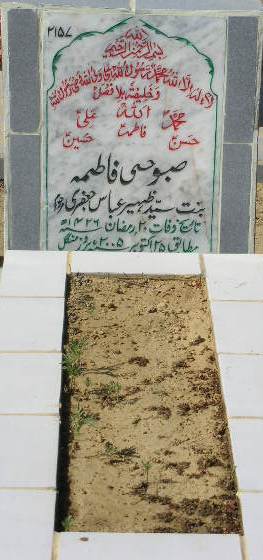 ۲۱۵۷
اللہ
بسم اللہ الرحمن الرحیم
لا الہ الا اللہ محمد رسول اللہ علی ولی اللہ وصی رسول اللہ
وخلیفتہ بلا فصل
محمدؐ اللہ علیؑ
حسنؑ فاطمہؑ حسینؑ
صبوحی فاطمہ
بنت سید ظہیر عباس جعفری مرحوم
تاریخ وفات ۲۰ رمضان ۱۴۲۶ھ
مطابق ۲۵ اکتوبر ۲۰۰۵ء بروز منگل